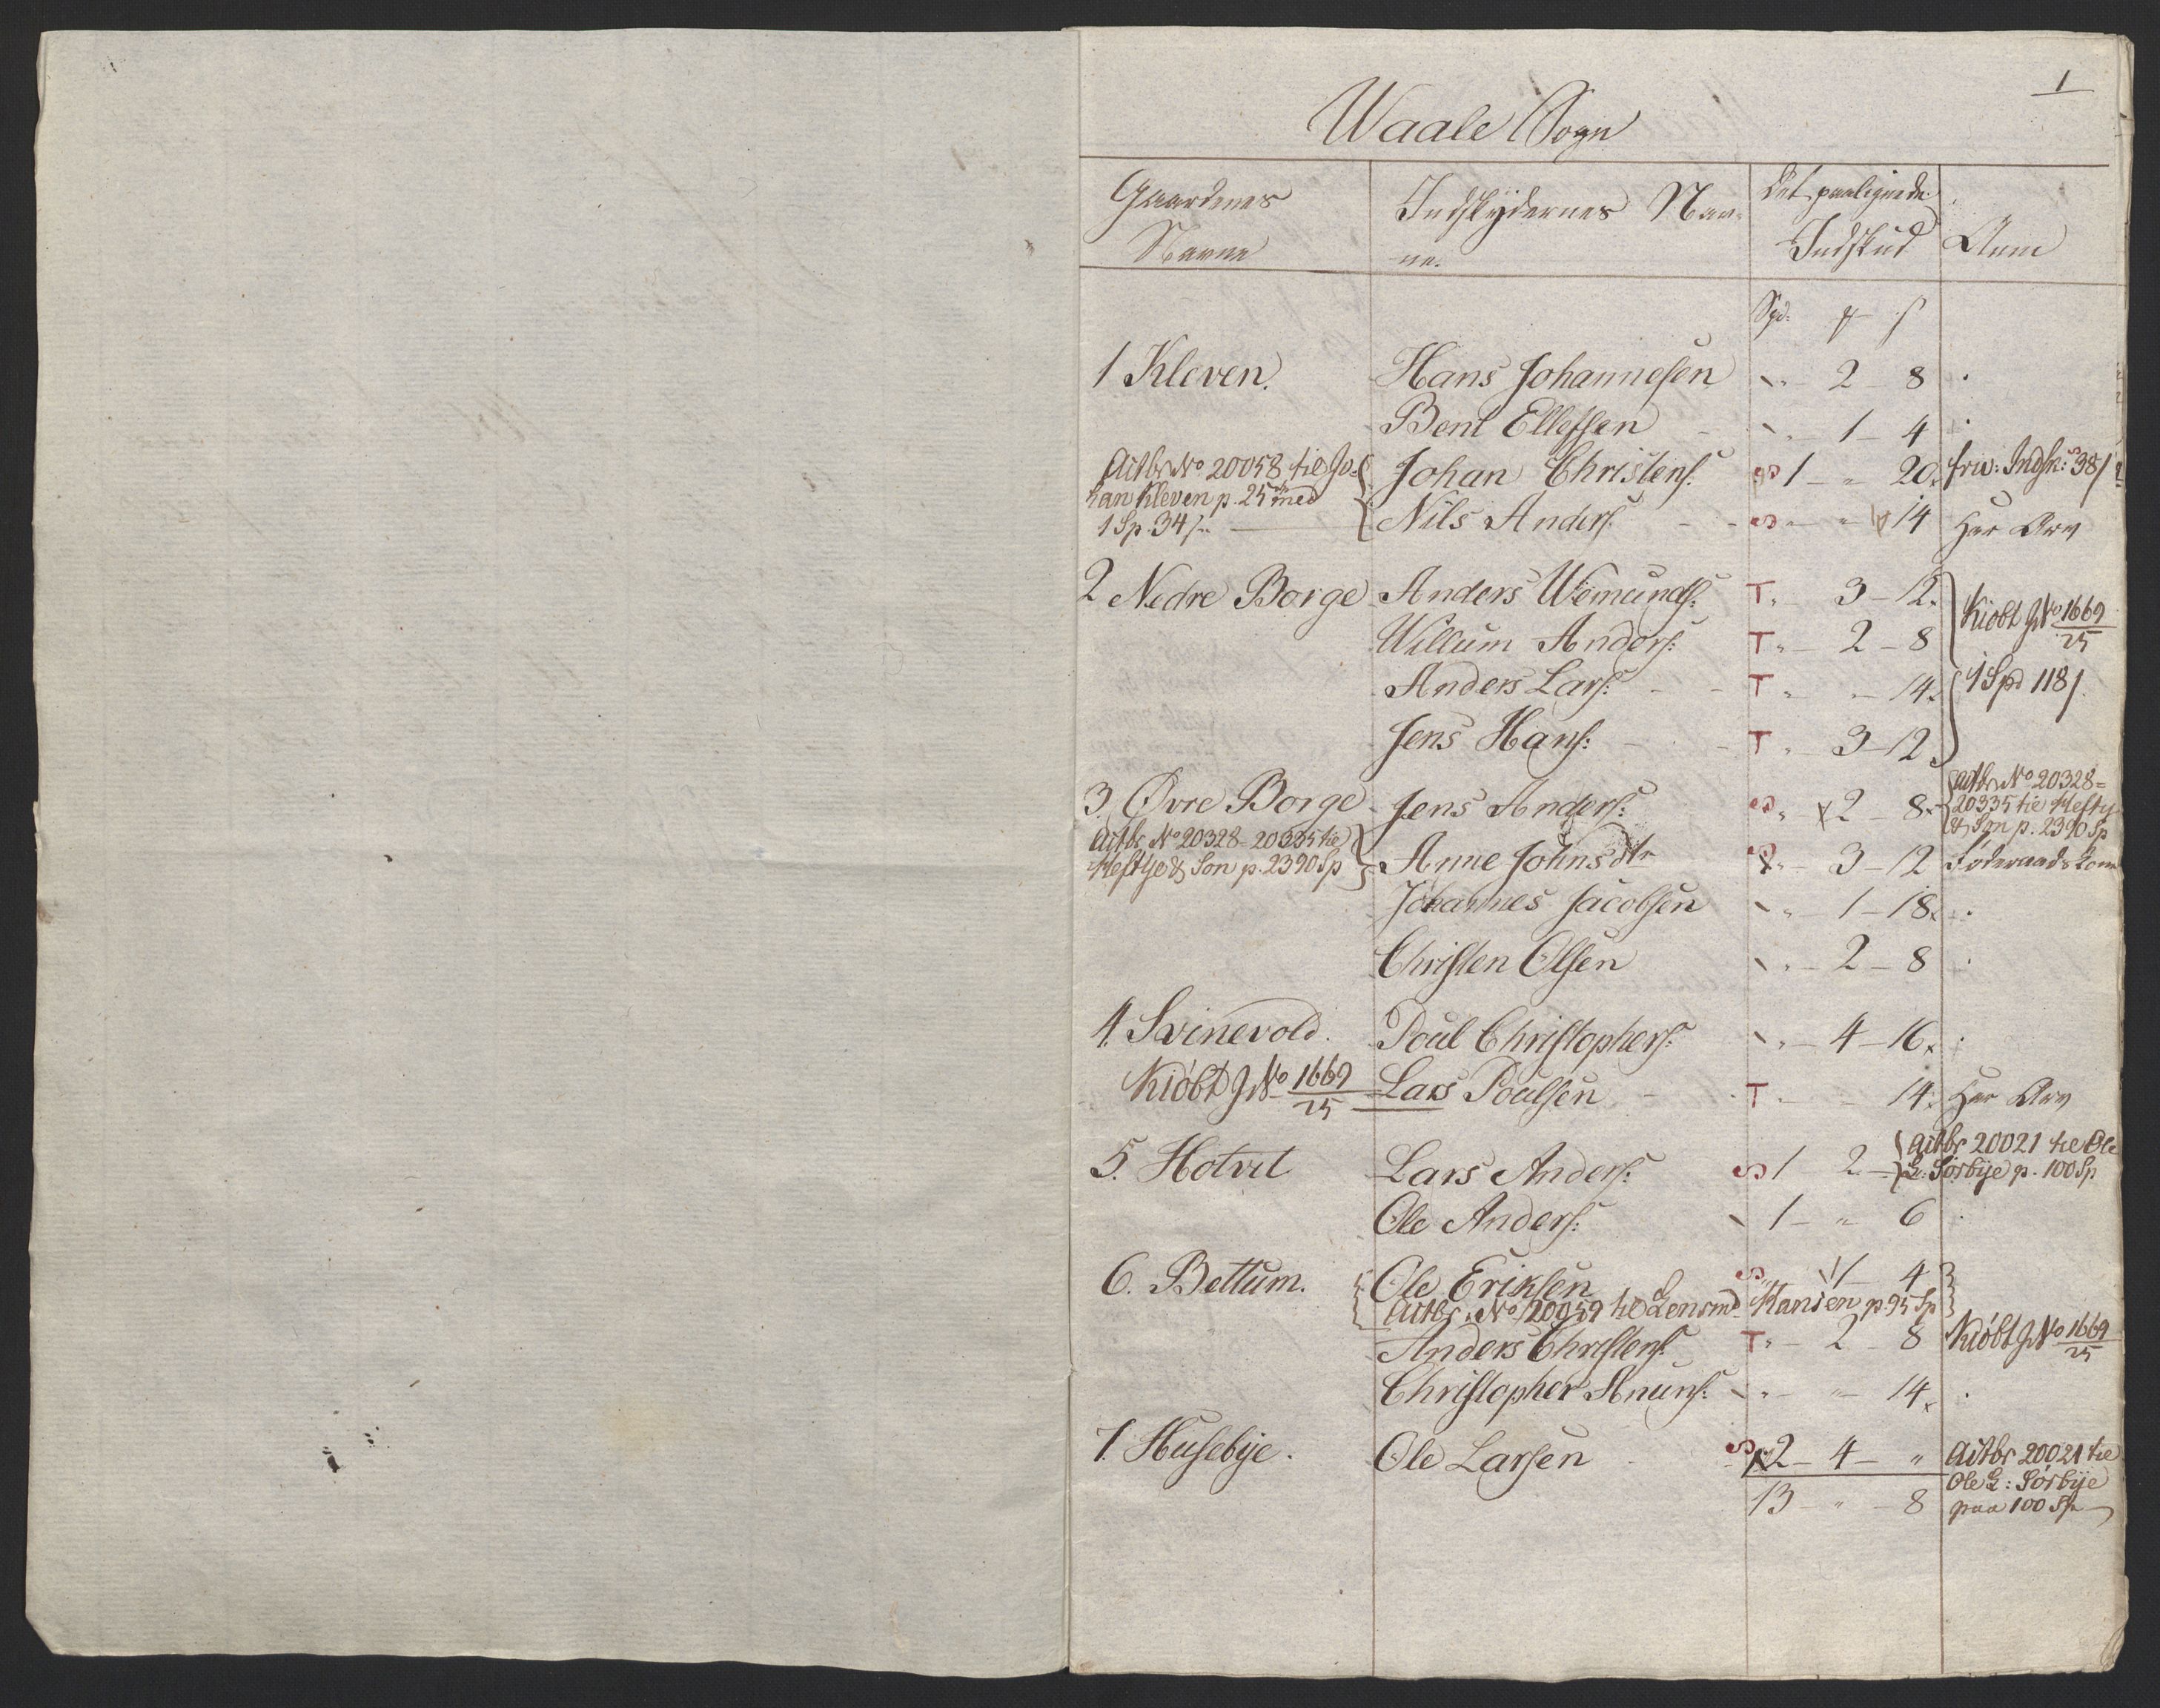 1
Waale Sogn
Gaardenes Navne | Indskydernes Navne. | Det paalignede Indskud | Anm
Spd. ꝑ ſ
1 Kleven. Hans Johannesen " 2 - 8
Bent Ellefsen - " 1 - 4
Actbr No 20058 til Jo- Johan Christens: S 1 - " 20. friv: Indsk: 38 ſ
han Kleven p. 25 med
1 Sp. 34 ſ. Nils Anders: - - S " - " 14 Har Arv
2 Nedre Borge Anders Wemunds: T " 3 - 12. Kiøbt J No 1669/25
Willum Anders: T " - 2 - 8
Anders Lars: - - T " - " - 14. 1 Spd 118 ſ.
Jens Hans: - - T " 3 - 12
3. Øvre Borge Jens Anders: S " 2 8. Actbr No 20328-
20335 til Heftye
& Søn p. 2390 Sp
Actbr. No 20328-20335 til
Heftye & Søn p. 2390 Sp Anne Johnsdtr S " 3 - 12 Føderaads Kone
Johannes Jacobsen " 1 - 18.
Christen Olsen " - 2 - 8
4. Svinevold. Poul Christophers: " - 4 - 16.
Kiøbt J No 1669/25 Lars Poulsen - T " - - 14. Har Arv
5. Hotvet Lars Anders: S 1 2 - Actbr 20021 til Ole
L: Sørbye p. 100 Sp
Ole Anders: 1 - " 6
6. Bettum. Ole Eriksen S " 1 - 4
Actbr. No 20059 til Lensmd Hansen p. 95 Sp
Anders Christens: T " - 2 8 Kiøbt J No 1669/25
Christopher Knuds: " - " - 14.
7. Husebye. Ole Larsen S 2 - 4 - " Actbr 20021 til
Ole L: Sørbye
paa 100 Sp
13 - " - 8